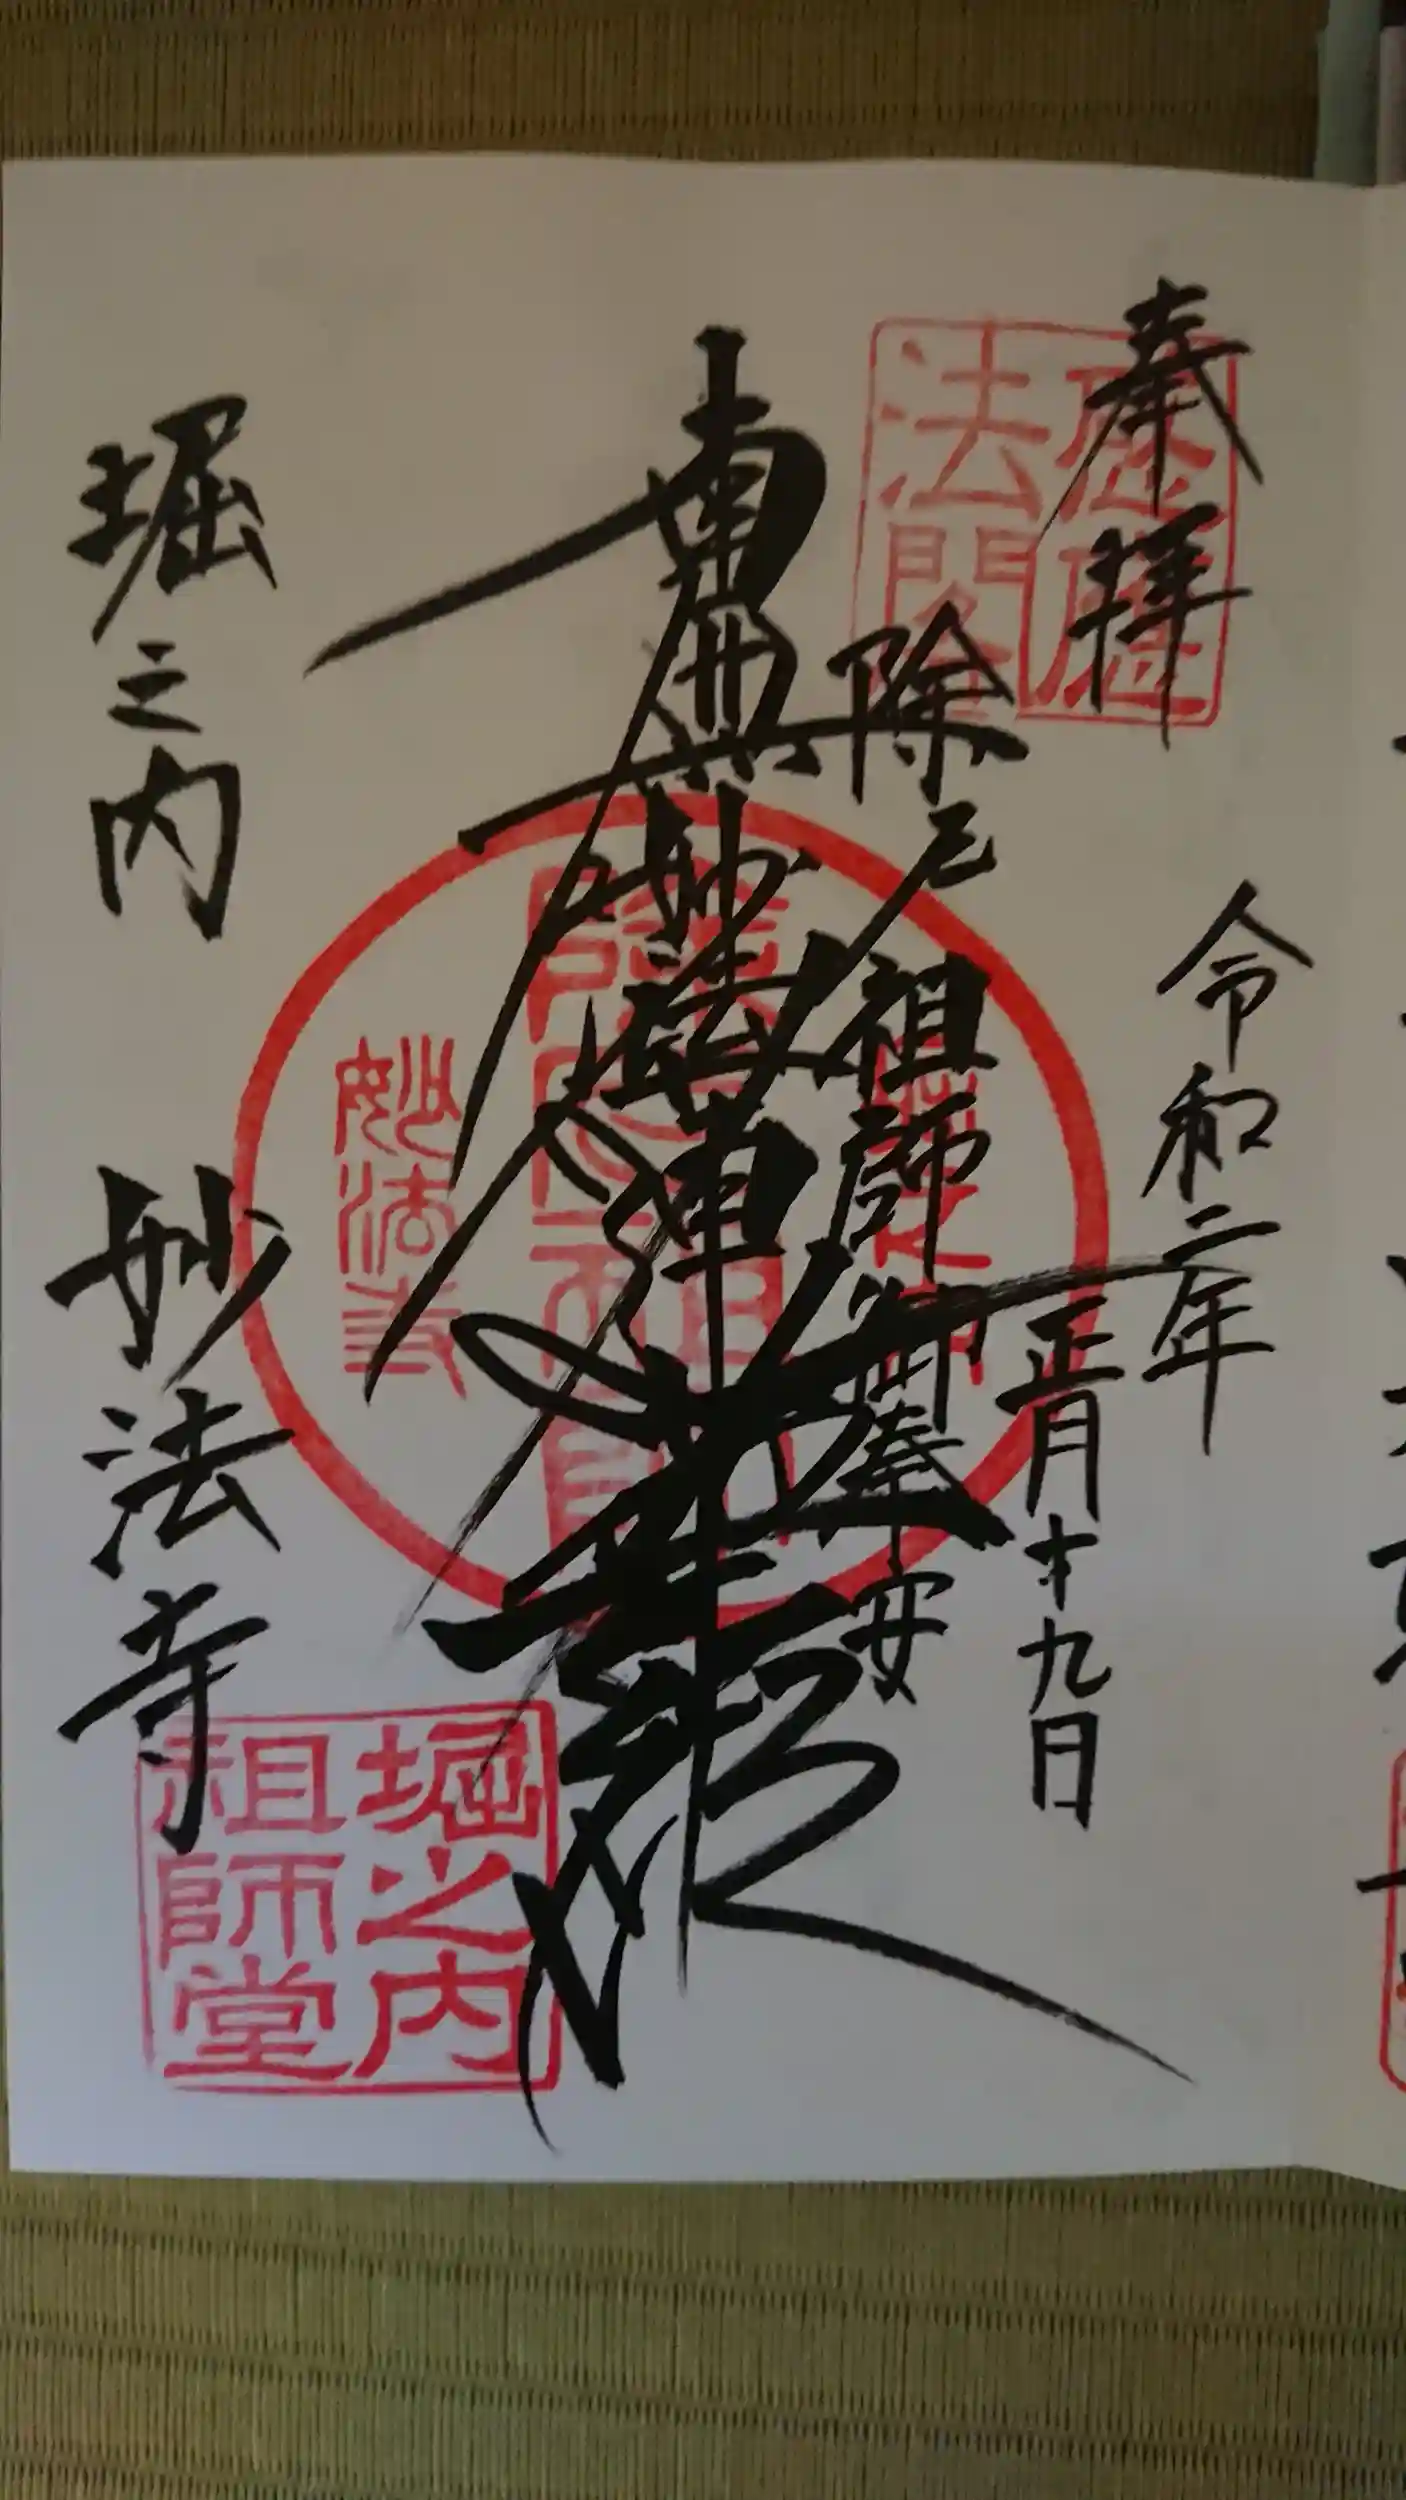 奉拝
令和二年
正月十九日
除厄祖師御奉安
南無妙法蓮華経
堀之内
妙法寺
法門
妙法寺
堀之内
祖師堂